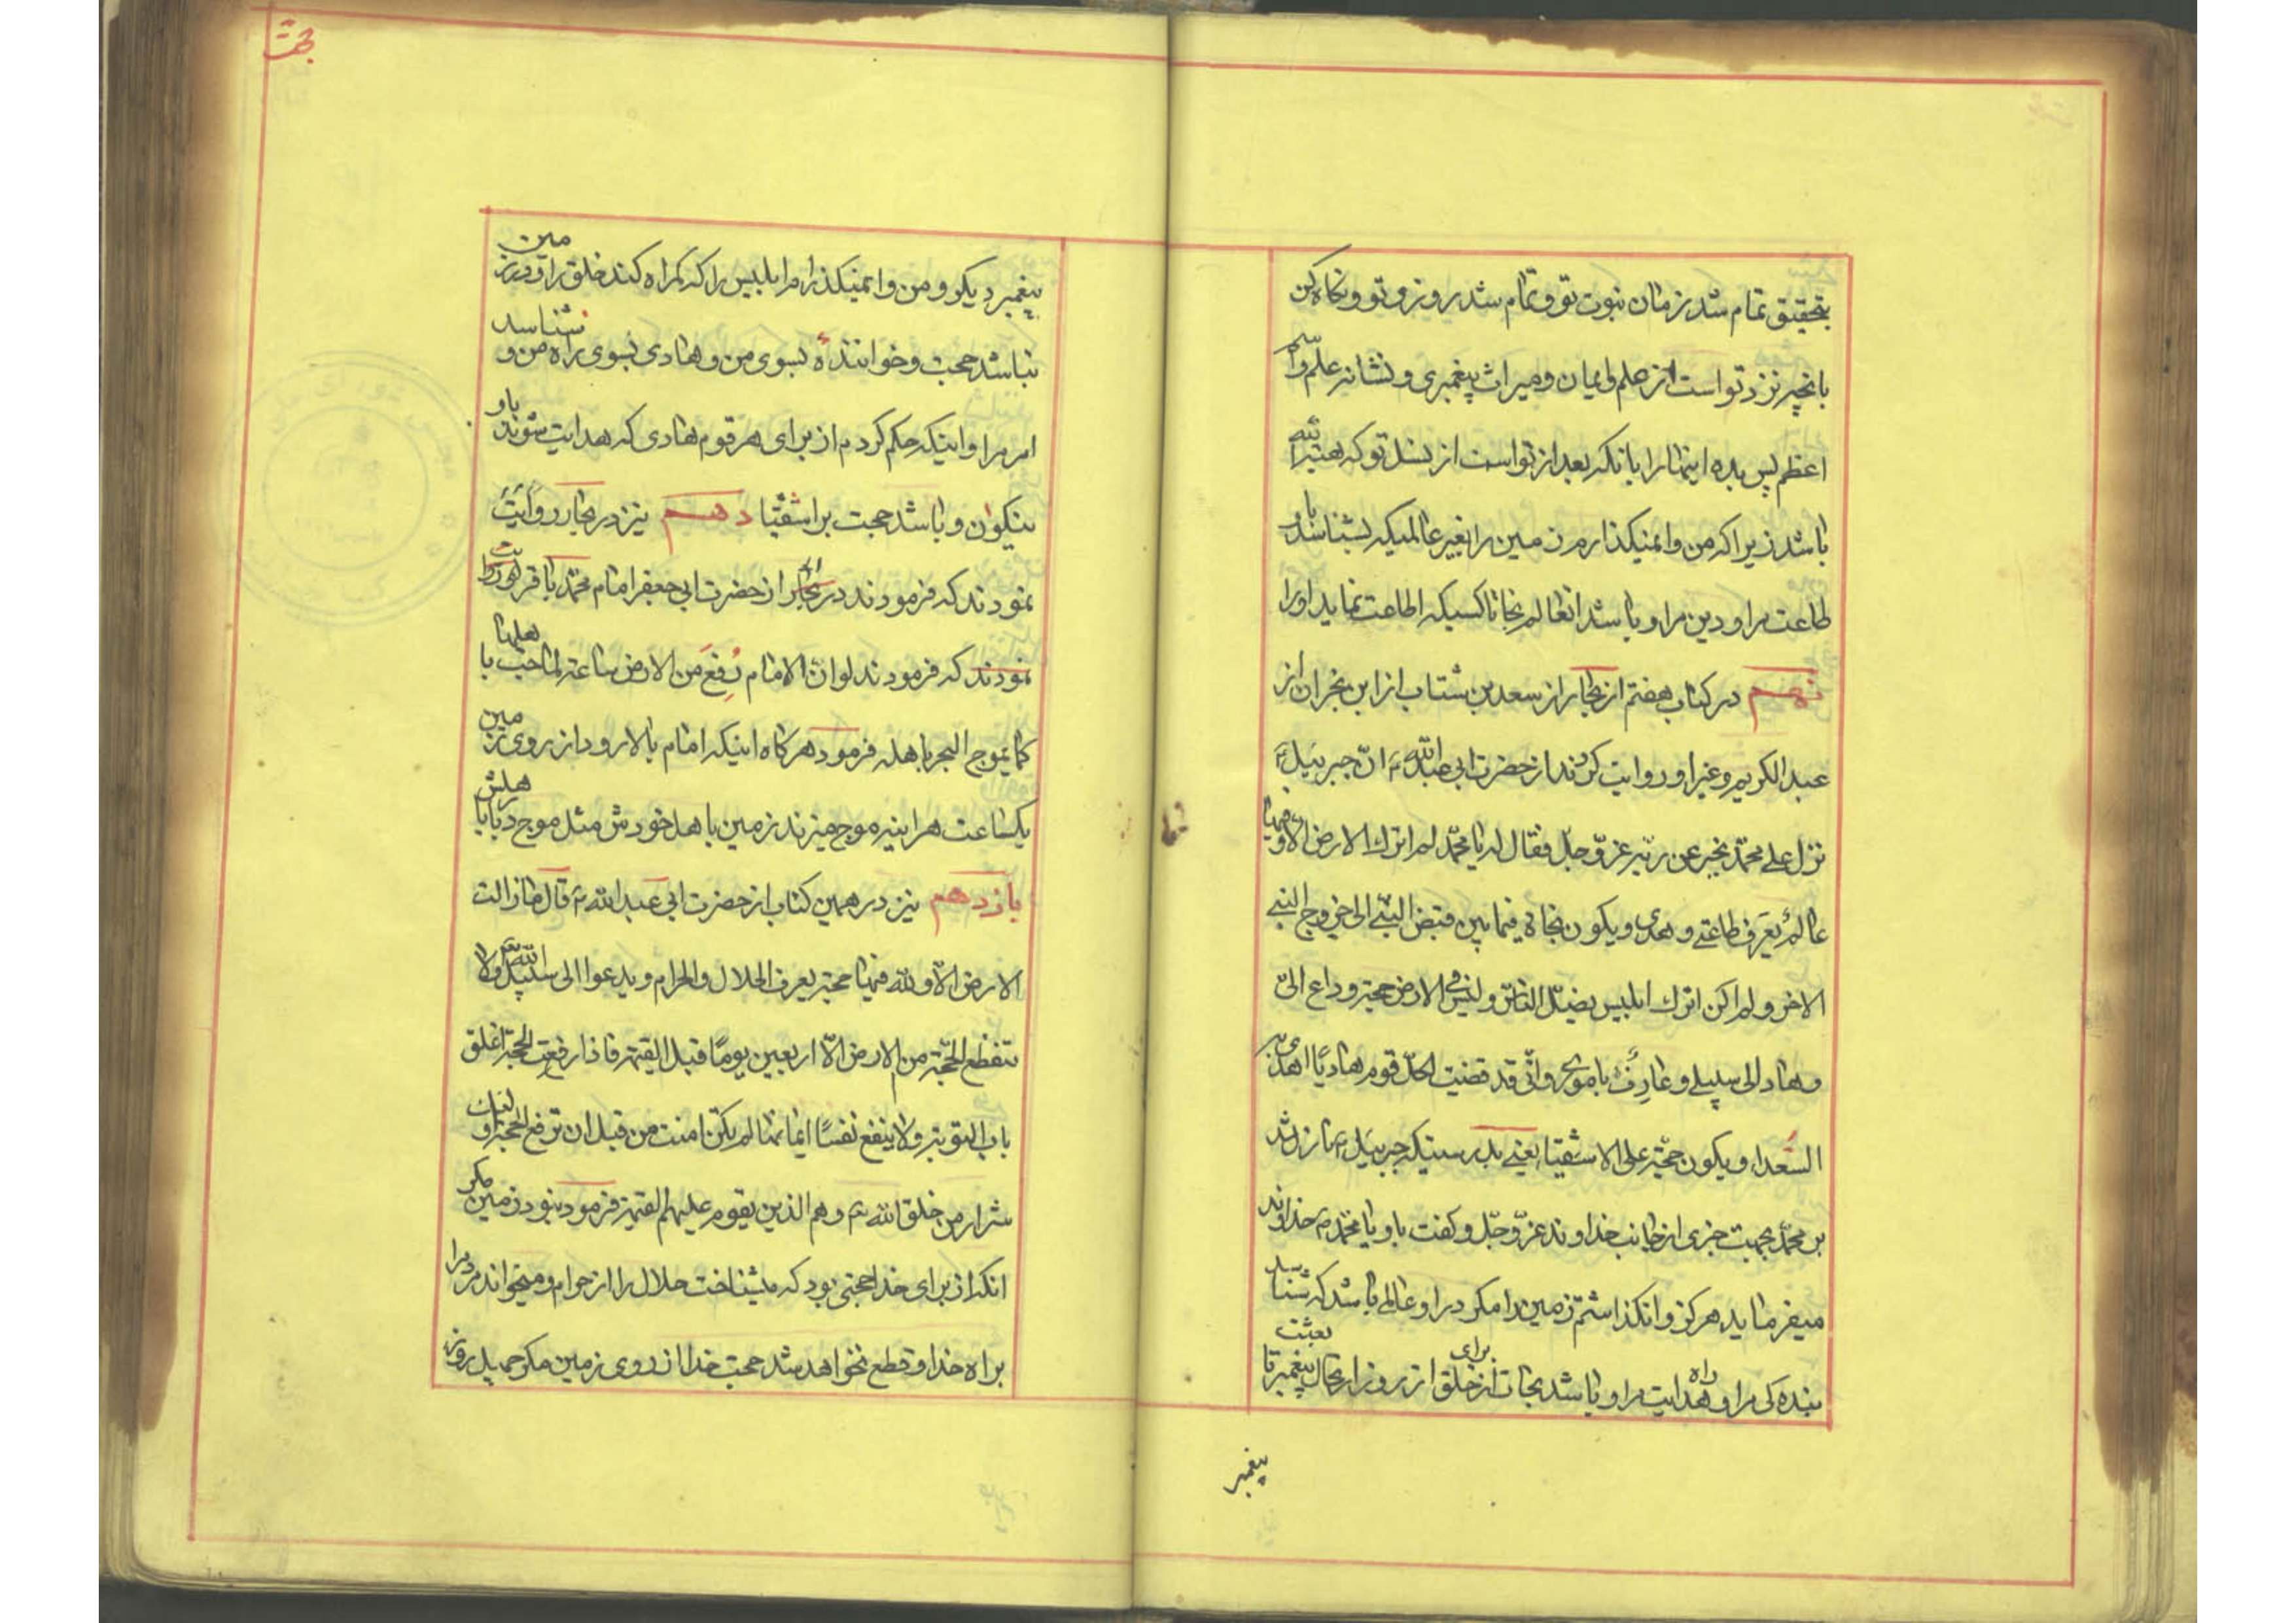 بتحقیق تمام شد زمان نبوت تو و تمام شد روز و تو و نکاه کن
بانچه نزد تو است از علم و ایمان و میراث پیغمبری و نشانه علم و اسم
اعظم پس بده اینها را بانکه بعد از تو است از نسل تو که بهترانند
باشد زیرا که من وانمیکذارم زمین را بغیر عالمیکه بشناساند باو
طاعت مرا و دین مرا و باشد انعالم نجات کسیکه اطاعت نماید او را
نهم در کتاب هفتم از بحار از سعد بن از ابن نجران از
عبد الکریم و غیر او روایت کردند از حضرت ابی عبد الله ع ان جبرئیل ع
نزل علی محمد یخبر عن ربه عز و جل فقال له یا محمد لم اترك الارض الا و فیها
عالم یعرف طاعتی و هدی و یکون نجاة فیما بین قبض النبی الی خروج النبی
الاخر و لم اکن اترك ابلیس یضل الناس و لیس فی الارض حجة و داع الی
و هاد الی سبیلی و عارف بامری و انی قد قضیت لکل قوم هادیا اهدی به
السعدا و یکون حجة علی الاشقیا یعنی بدرستیکه جبرئیل ع نازل شد
بر محمد بجهت خبری از جانب خداوند عز و جل و کفت باو یا محمد م خداوند
میفرماید هرکز وانکذاشتم زمین را مکر در او عالمی باشد که شناسد
بندکی مرا و راه هدایت مرا و باشد نجات از برای خلق از روز ارتحال پیغمبر تا بعثت
پیغمبر
حجت
پیغمبر دیکر و من وانمیکذارم ابلیس را که کمراه کند خلق را و در زمین
نباشد حجت و خواننده بسوی من و هادی بسوی راه من و شناسد
امر مرا و اینکه حکم کردم از برای هر قوم هادی که هدایت شوند باو
نیکوان و باشد حجت بر اشقیا دهم نیز در بحار روایت
نمودند که فرمودند در بحار از حضرت ابی جعفر امام محمد باقر
نمودند که فرمودند لو ان الامام رفع من الارض ساعة لماجت باهلها
کما یموج البحر باهله فرمود هرکاه اینکه امام بالا رود از روی زمین
یکساعت هراینه موج میزند زمین باهل خودش مثل موج دریا باهلش
یازدهم نیز در همین کتاب از حضرت ابی عبد الله ع قال مازالت
الارض الا و لله فیها حجة یعرف الحلال و الحرام و یدعوا الی سبیل الله و لا
تنقطع الحجة من الارض الا اربعین یوما قبل القیمة فاذا رفعت الحجة اغلق
باب التوبة و لا ینفع نفسا ایمانها لم تکن امنت من قبل ان ترفع الحجة اولئك
شرار من خلق الله و هم الذین یقوم علیهم القیمة فرمود نبود زمین مکر
انکه از برای خدا حجتی بود که میشناخت حلال را از حرام و میخواند مردم را
براه خدا و قطع نخواهد شد حجت خدا از روی زمین مکر چهل روز